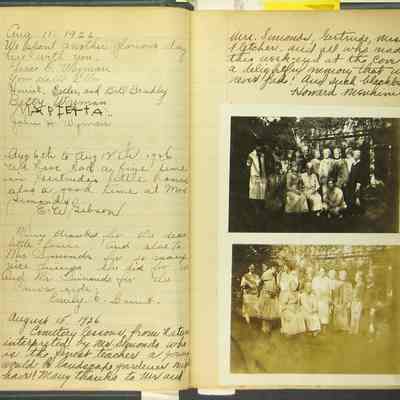 Aug 11, 1926
We spent another glorious day
here with you.
Grace E. Wyman
Your
Harriet, Esther, and Bill Bradley
Betty Wyman
MARIETTA
John H. Wyman
Aug 6th to Aug 12th 1926
We have had a fine time
in Gertrudes little house
also a good time at Mrs
Simonds.
E. E. Gibson
Many thanks for the dear
little house and also to
Mrs Symonds for so many
nice things she did for us
and Mr. Simonds for the
nice ride.
Emily E.
August 15, 1926
Cemetery lessons, from Nature
interpreted by Mr Simonds who
is the finest teacher a young
would be landscape gardener
have! Many thanks to Mr and
Mrs. Simonds, Gertrude, Miss
Fletcher, and all who made
this week-end at the
a delightful memory that
never fade!
Howard